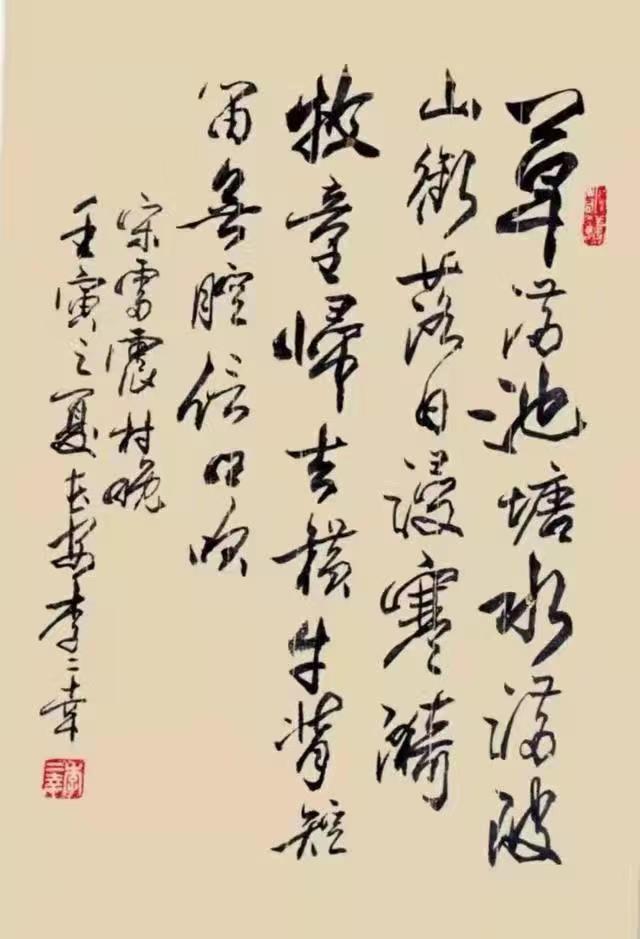 草满池塘水满陂
山衔落日浸寒漪
牧童归去横牛背短
笛无腔信口吹
宋雷震村晚
壬寅之夏长安李二幸
李二幸